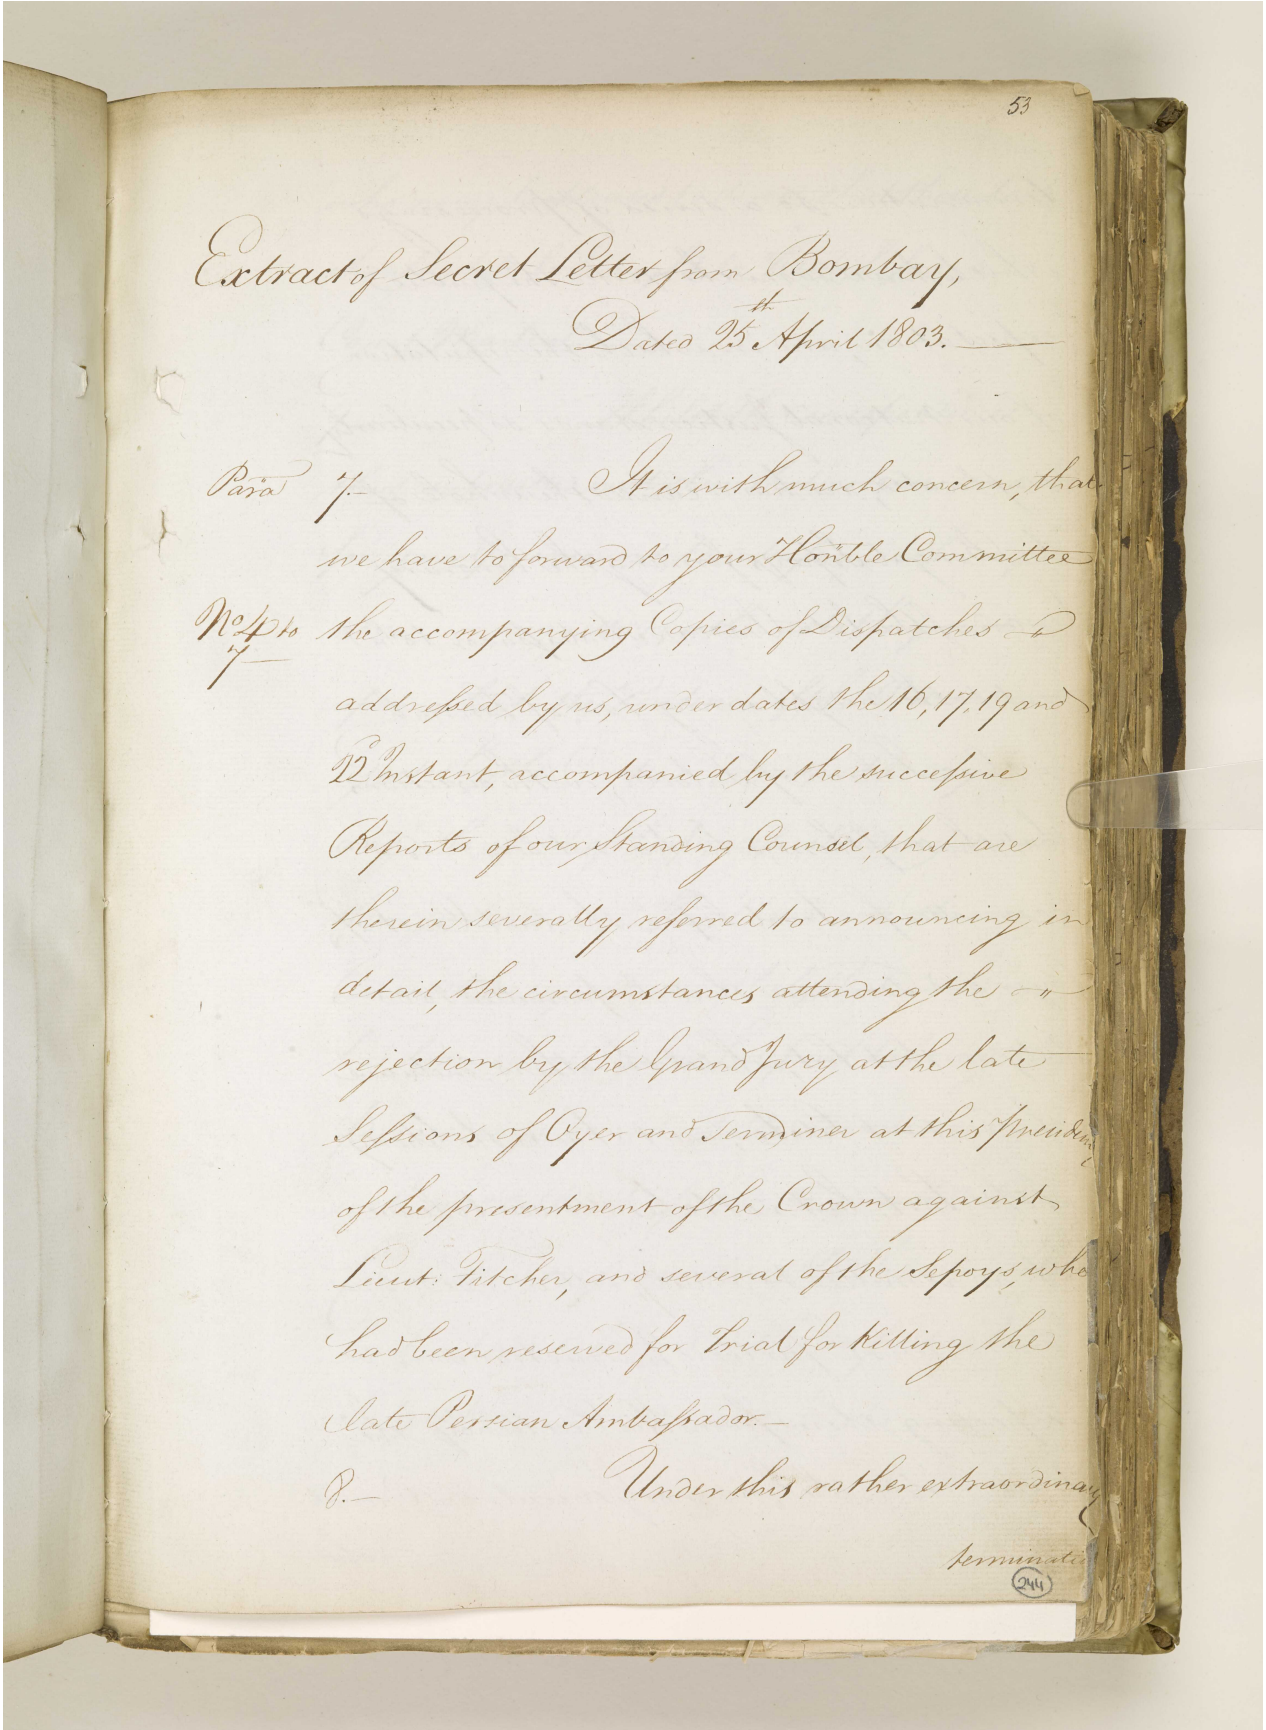 53
Extract of Secret Letter from Bombay,
Dated 25th April 1803.
Para 7. It is with much concern, that
we have to forward to your Honble Committee
No 4 to the accompanying Copies of Dispatches
7
addressed by us, under dates the 16, 17, 19 and
22d Instant, accompanied by the successive
Reports of our Standing Counsel, that are
therein severally referred to announcing in
detail, the circumstances attending the
rejection by the Grand Jury at the late
Sessions of Oyer and Terminer at this Presidency
of the presentment of the Crown against
Lieut: Pitcher, and several of the Sepoys, who
had been reserved for Trial for Killing the
late Persian Ambassador.
8. Under this rather extraordinary
terminati
244